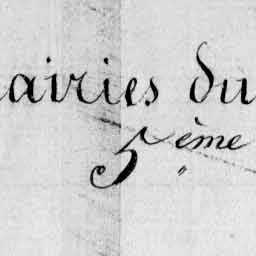 airies du
5ème
"